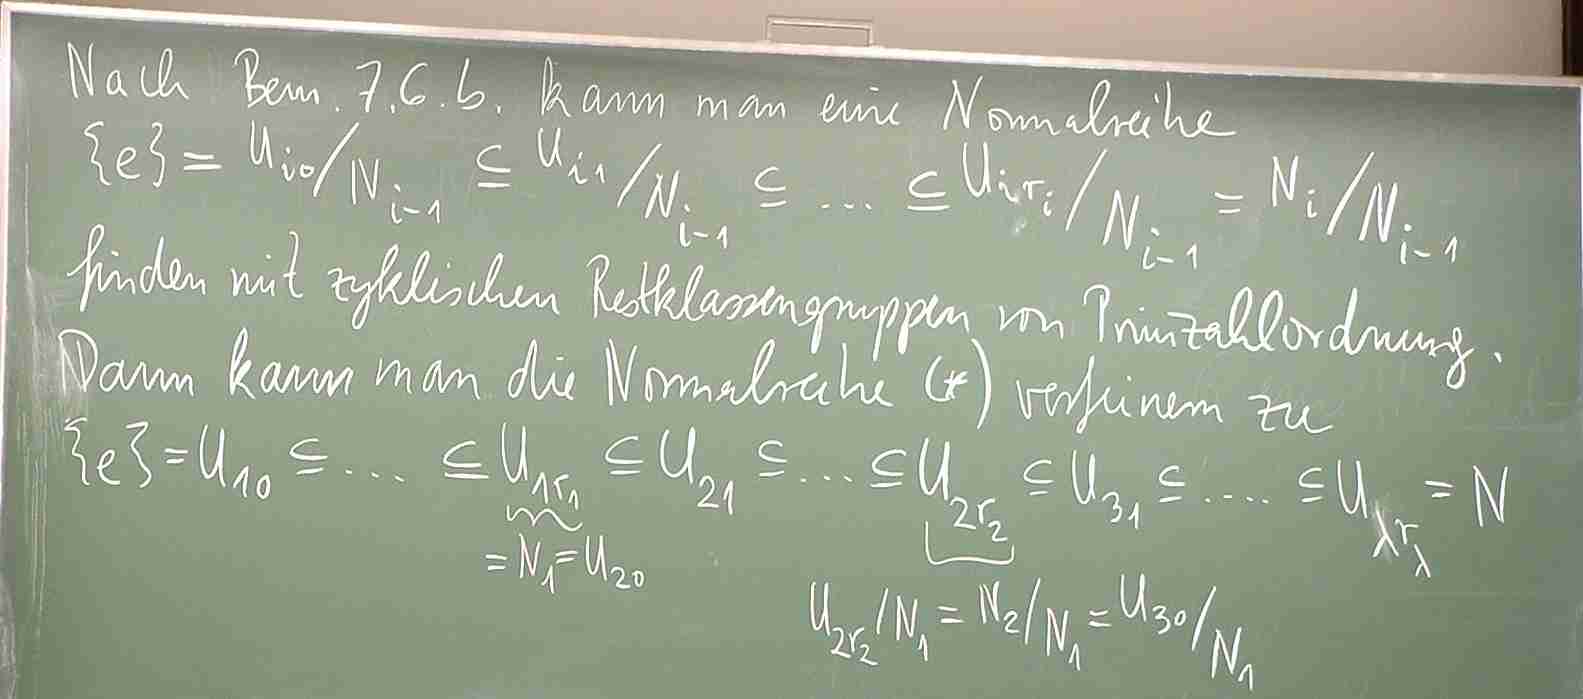 Nach Bem. 7.6.b. kann man eine Normalreihe
{e} = U_{i0}/N_{i-1} ⊆ U_{i1}/N_{i-1} ⊆ ... ⊆ U_{ir_i}/N_{i-1} = N_i/N_{i-1}
finden mit zyklischen Restklassengruppen von Primzahlordnung.
Dann kann man die Normalreihe (*) verfeinern zu
{e} = U_{10} ⊆ ... ⊆ U_{1r_1} ⊆ U_{21} ⊆ ... ⊆ U_{2r_2} ⊆ U_{31} ⊆ .... ⊆ U_{λr_λ} = N
= N_1 = U_{20}
U_{2r_2}/N_1 = N_2/N_1 = U_{30}/N_1